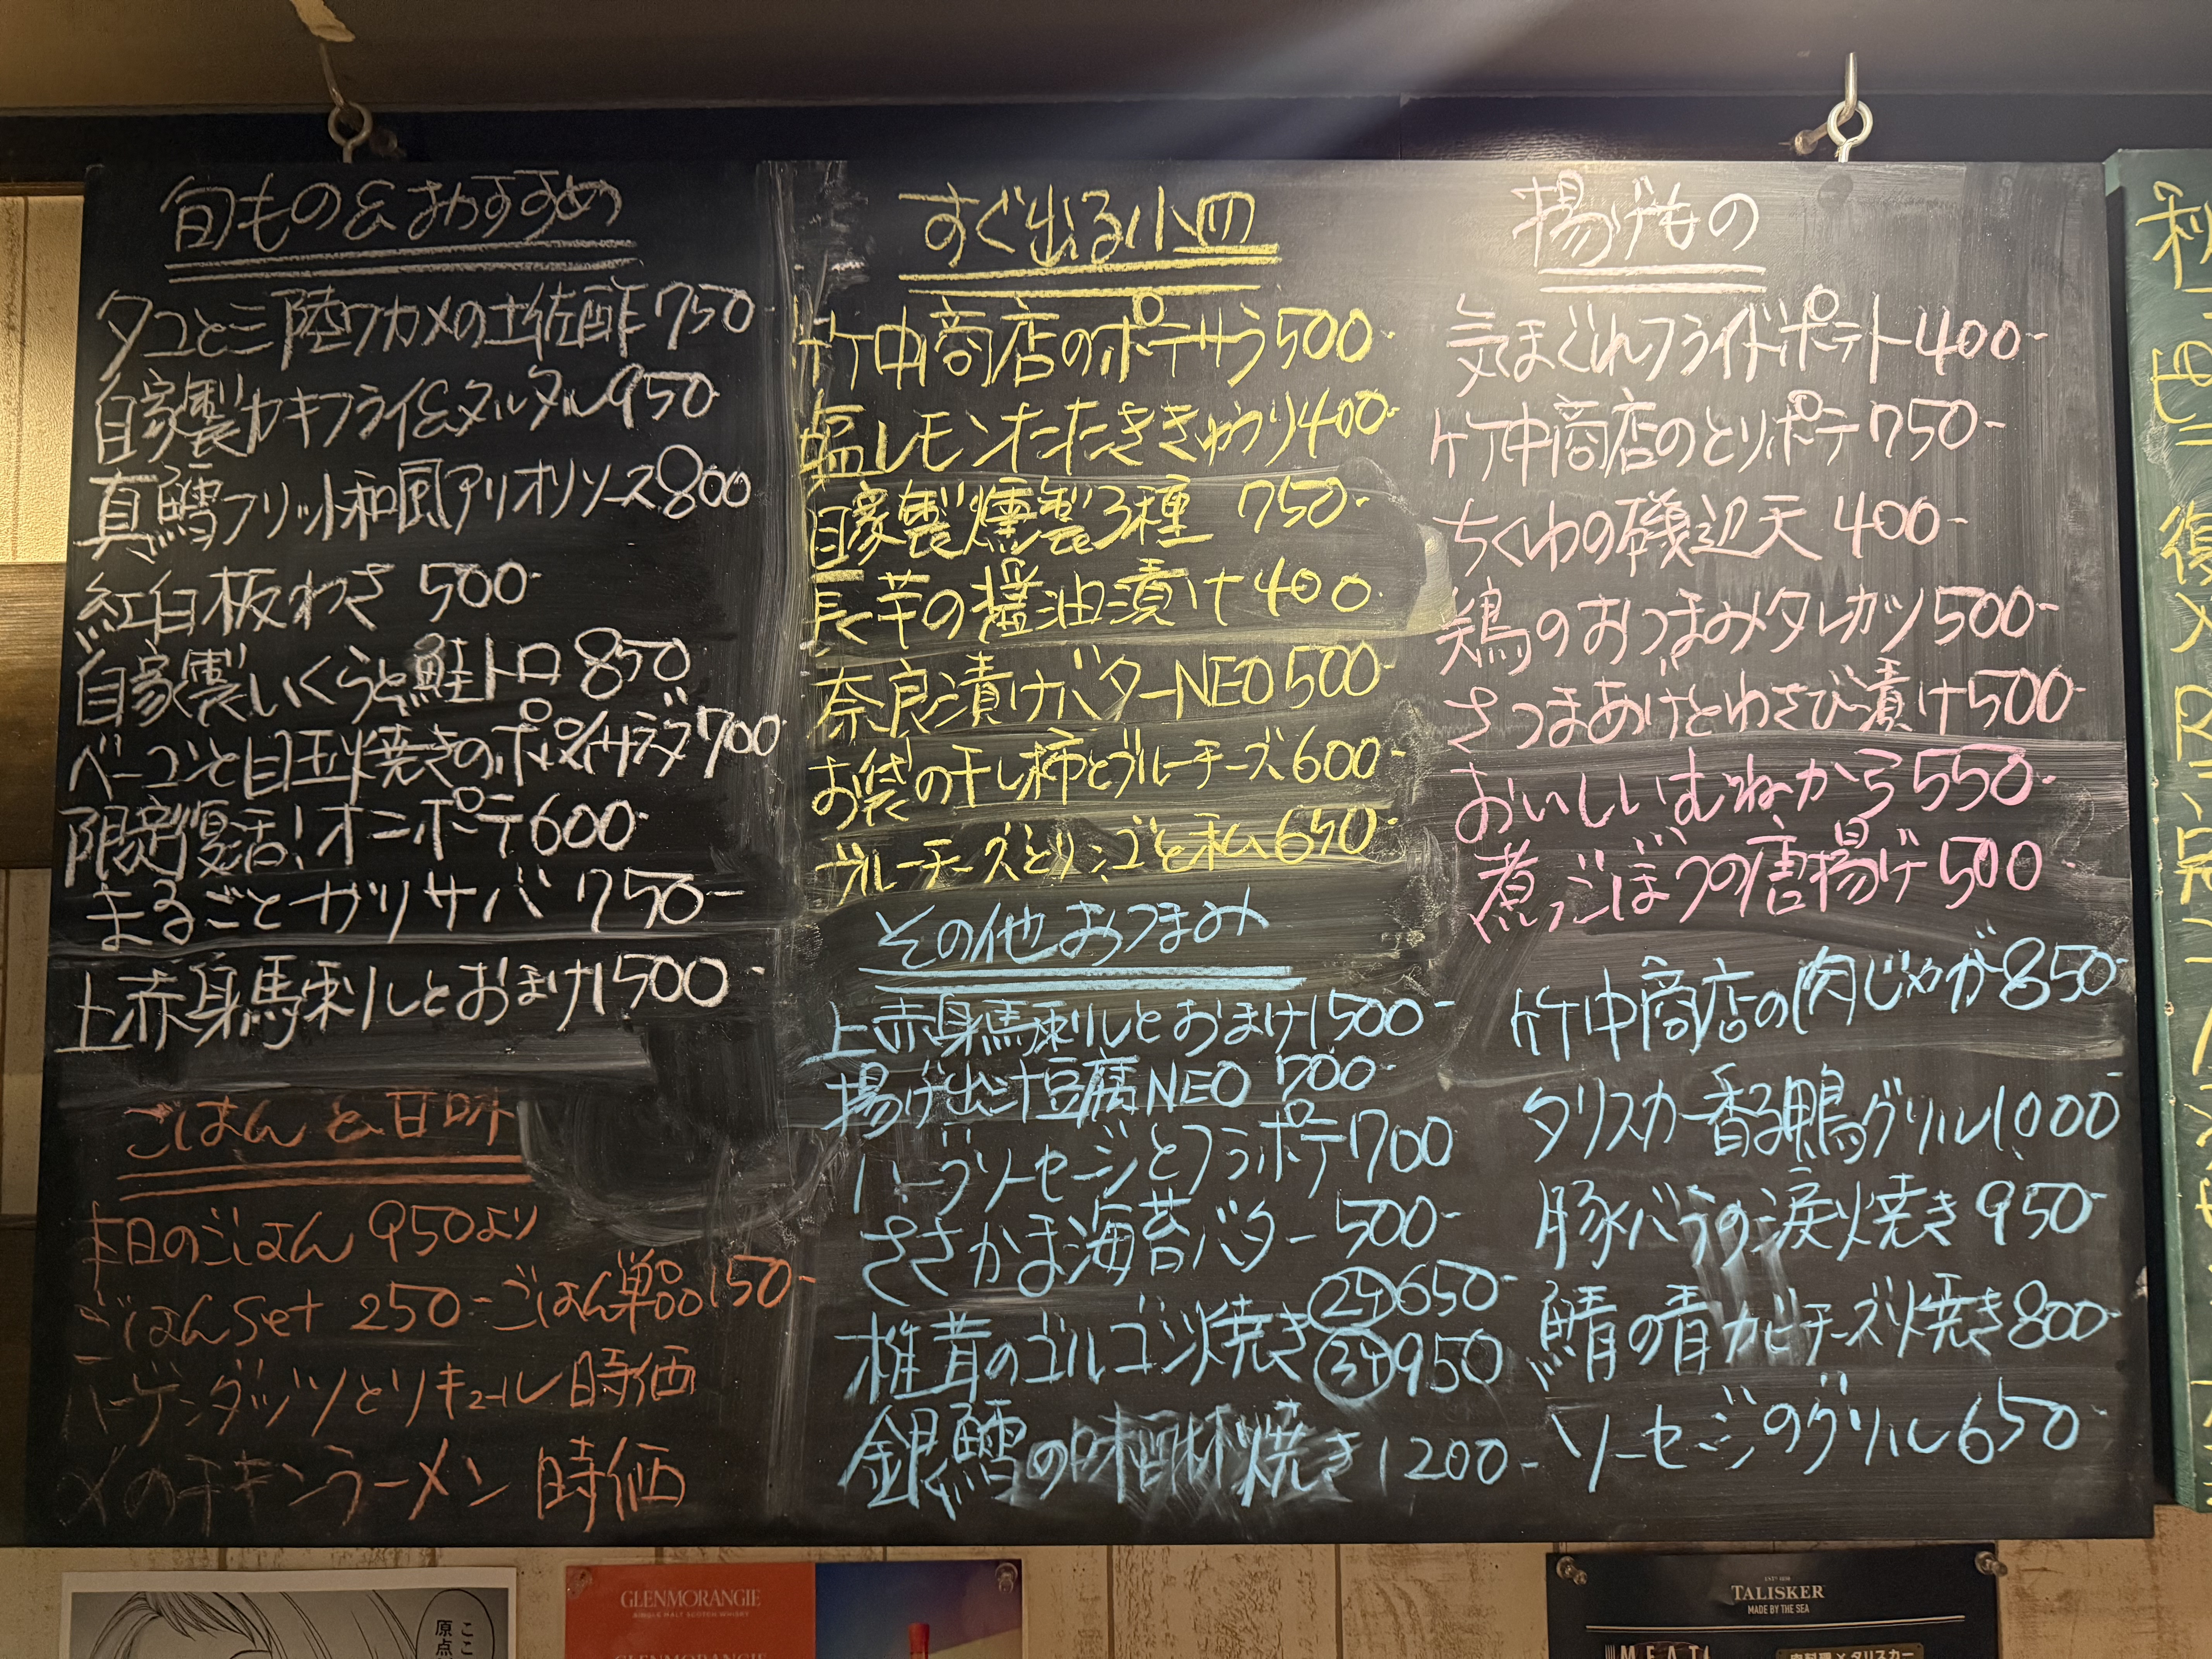 旬もの&おすすめ
タコと三陸ワカメの土佐酢750-
自家製カキフライ&タルタル950-
真鱈フリット和風アリオリソース800
紅白板わさ 500-
自家製いくらと鮭トロ 850
ベーコンと目玉焼きのポパイサラダ700-
限定復活!オニポテ600-
まるごとガリサバ 750-
上赤身馬刺しとおまけ1500-
ごはんと甘味
本日のごはん 950より
ごはんset 250- ごはん単品150-
ハーゲンダッツとリキュール 時価
〆のチキンラーメン 時価
すぐ出る小皿
竹中商店のポテサラ500-
塩レモンオたたききゅうり400-
自家製燻製3種 750-
長芋の醤油漬け400-
奈良漬けバターNEO500-
お袋の干し柿とブルーチーズ600-
ブルーチーズとリンゴと私650-
その他おつまみ
上赤身馬刺しとおまけ1500-
揚げ出汁豆腐NEO 700-
ハーブソーセージとフラポテ700
ささかま海苔バター 500-
椎茸のゴルゴン焼き 2ケ650-
3ケ950
銀鱈の味噌焼き1200-
揚げもの
気まぐれフライドポテト400-
竹中商店のとりポテ750-
ちくわの磯辺天 400-
鶏のおつまみタレカツ500-
さつまあげとわさび漬け500-
おいしいむねから550-
煮ごぼうの唐揚げ500-
竹中商店の肉じゃが850-
タリスカー香る鴨グリル1000
豚バラの涙焼き950-
鯖の青カビチーズ焼き800-
ソーセージのグリル650-
GLENMORANGIE
SINGLE MALT SCOTCH WHISKY
TALISKER
MADE BY THE SEA